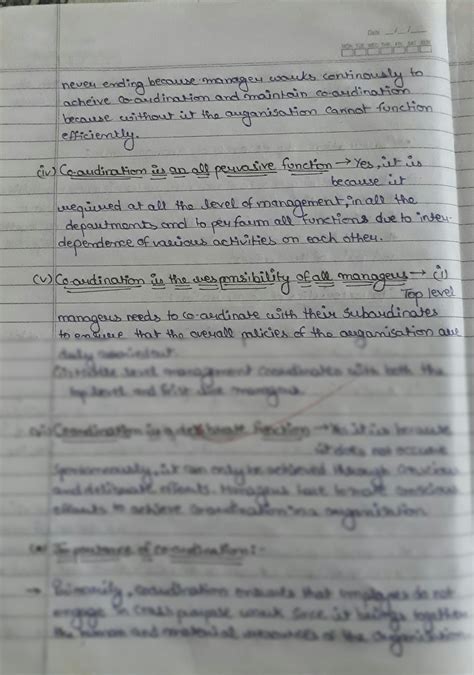 Date __/__/__
MON TUE WED THU FRI SAT SUN
never ending because manager works continously to
acheive co-ordination and maintain co-ordination
because without it the organisation cannot function
efficiently.
(iv) Co-ordination is an all pervasive function → Yes, it is
because it
required at all the level of management, in all the
departments and to perform all functions due to inter-
dependence of various activities on each other.
(v) Co-ordination is the responsibility of all managers → (i)
Top level
managers needs to co-ordinate with their subordinates
to ensure that the overall policies of the organisation are
duly carried out.
middle level management coordinates with both the
top level and first line managers.
(vi) Coordination is a deliberate function → it is because
it does not occur
spontaneously, it can only be achieved through conscious
and deliberate efforts. Managers have to make conscious
efforts to achieve coordination in a organisation
Importance of co-ordination:-
→ coordination ensures that employees do not
engage in cross purpose work since it brings together
the human and material resources of the organisation